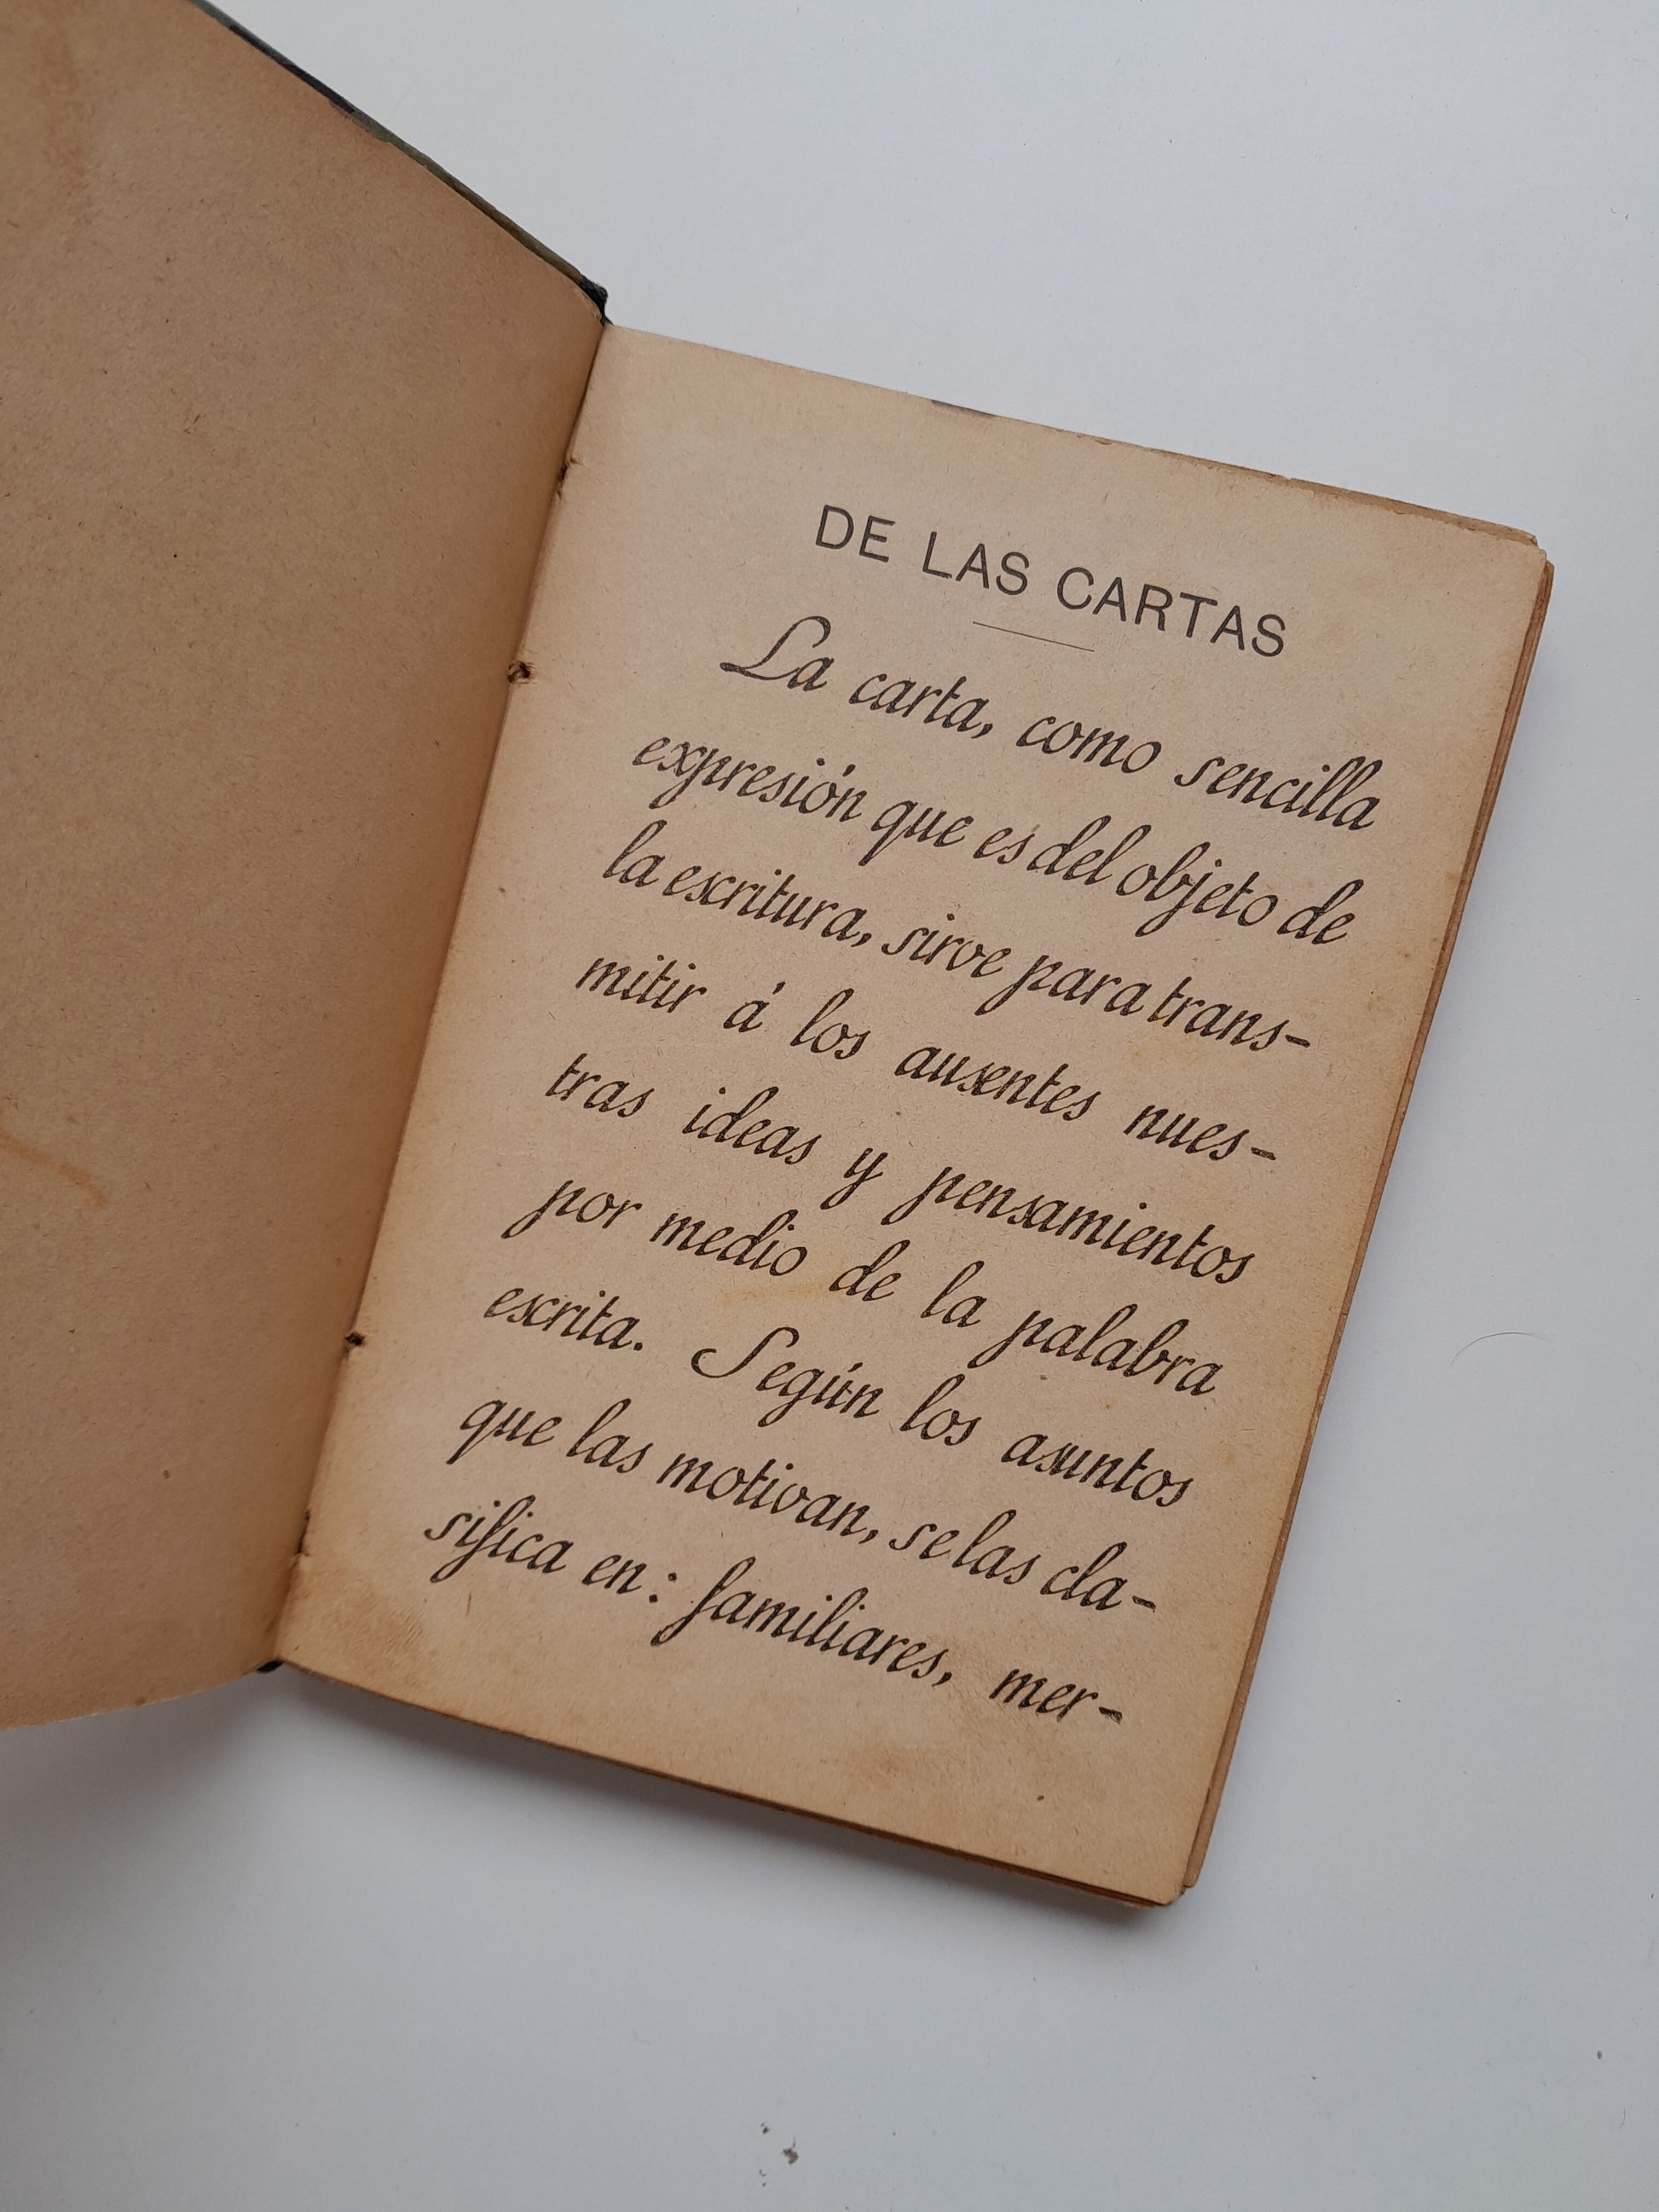 DE LAS CARTAS
La carta, como sencilla
expresión que es del objeto de
la escritura, sirve para trans-
mitir á los ausentes nues-
tras ideas y pensamientos
por medio de la palabra
escrita. Según los asuntos
que las motivan, se las cla-
sifica en: familiares, mer-